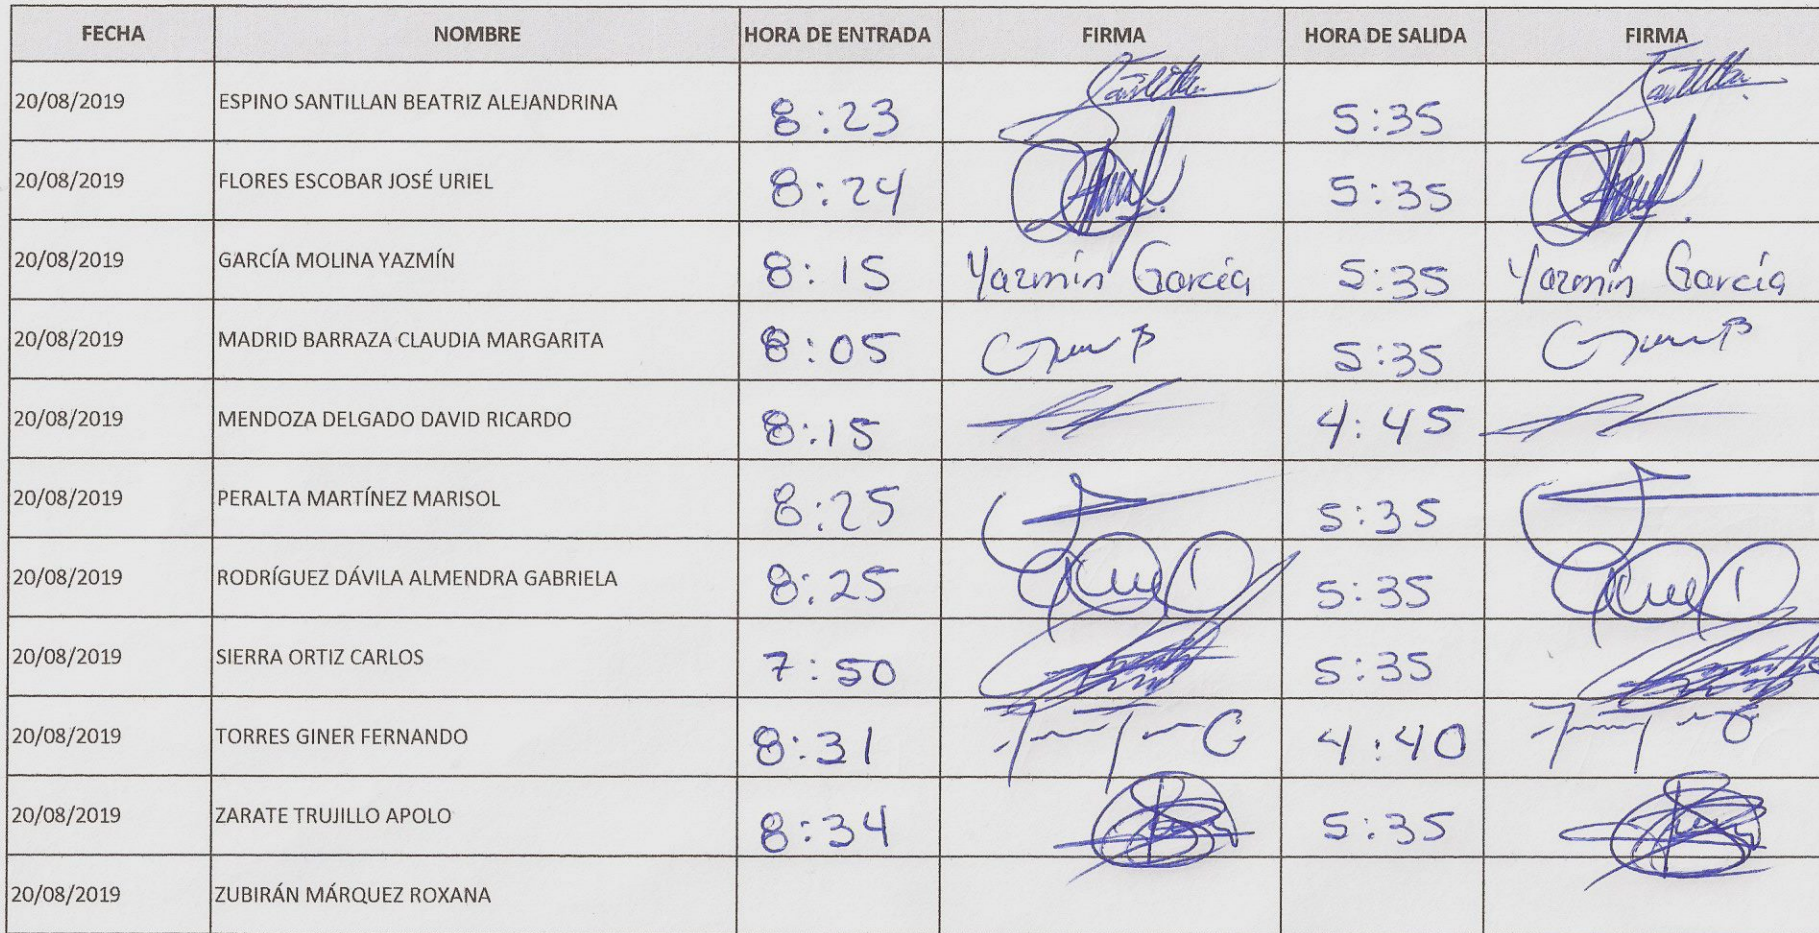 FECHA NOMBRE HORA DE ENTRADA FIRMA HORA DE SALIDA FIRMA
20/08/2019 ESPINO SANTILLAN BEATRIZ ALEJANDRINA 8:23 Santillan 5:35 Santillan
20/08/2019 FLORES ESCOBAR JOSÉ URIEL 8:24 5:35
20/08/2019 GARCÍA MOLINA YAZMÍN 8:15 Yazmín García 5:35 Yazmín García
20/08/2019 MADRID BARRAZA CLAUDIA MARGARITA 8:05 5:35
20/08/2019 MENDOZA DELGADO DAVID RICARDO 8:15 4:45
20/08/2019 PERALTA MARTÍNEZ MARISOL 8:25 5:35
20/08/2019 RODRÍGUEZ DÁVILA ALMENDRA GABRIELA 8:25 5:35
20/08/2019 SIERRA ORTIZ CARLOS 7:50 5:35
20/08/2019 TORRES GINER FERNANDO 8:31 4:40
20/08/2019 ZARATE TRUJILLO APOLO 8:34 5:35
20/08/2019 ZUBIRÁN MÁRQUEZ ROXANA